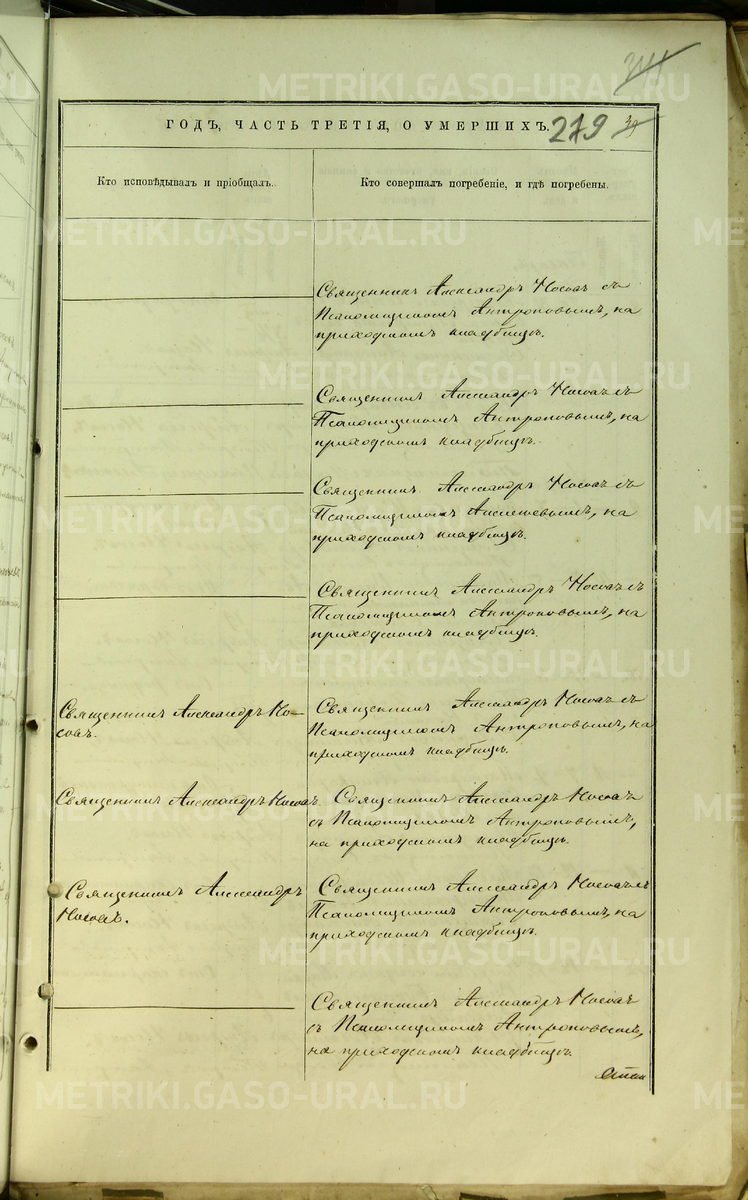 ГОДЪ, ЧАСТЬ ТРЕТІЯ, О УМЕРШИХЪ. 279
Кто исповѣдывалъ и пріобщалъ.
Кто совершалъ погребеніе, и гдѣ погребены.
Священникъ Александръ Носовъ съ
Псаломщикомъ Антроповымъ, на
приходскомъ кладбищѣ.
Священникъ Александръ Носовъ съ
Псаломщикомъ Антроповымъ, на
приходскомъ кладбищѣ.
Священникъ Александръ Носовъ съ
Псаломщикомъ на
приходскомъ кладбищѣ.
Священникъ Александръ Носовъ съ
Псаломщикомъ Антроповымъ, на
приходскомъ кладбищѣ.
Священникъ Александръ Но-
совъ.
Священникъ Александръ Носовъ съ
Псаломщикомъ Антроповымъ, на
приходскомъ кладбищѣ.
Священникъ Александръ Носовъ.
Священникъ Александръ Носовъ
съ Псаломщикомъ Антроповымъ,
на приходскомъ кладбищѣ.
Священникъ Александръ
Носовъ.
Священникъ Александръ Носовъ съ
Псаломщикомъ Антроповымъ, на
приходскомъ кладбищѣ.
Священникъ Александръ Носовъ
съ Псаломщикомъ Антроповымъ,
на приходскомъ кладбищѣ.
METRIKI.GASO-URAL.RU